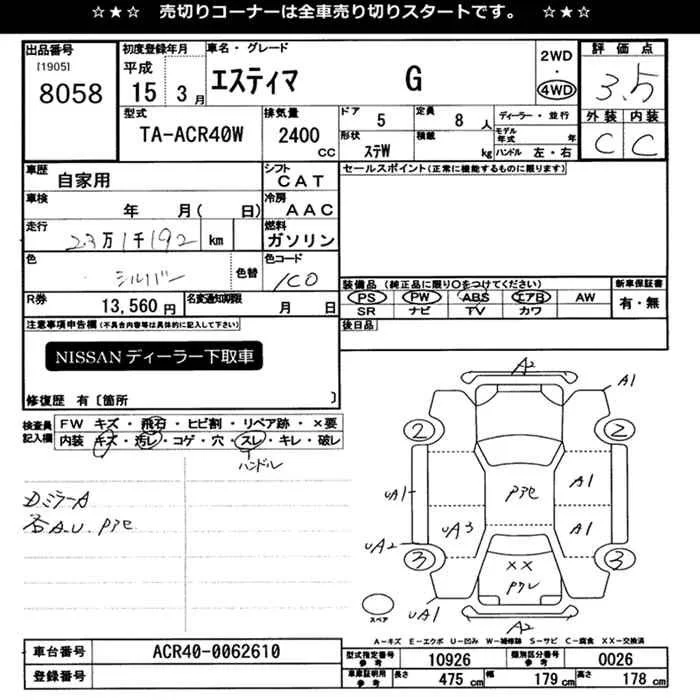 ☆★☆ 売切りコーナーは全車売り切りスタートです。 ☆★☆
出品番号 初度登録年月 車名・グレード 2WD・4WD 評価点
[1905] 平成
8058 15 3月 エスティマ G 3.5
型式 排気量 ドア 5 定員 8人 ディーラー・並行 外装 内装
TA-ACR40W 2400cc 形状 ステW 積載 kg モデル年式 年 ハンドル 左・右 C C
車歴 自家用 シフト CAT セールスポイント(正常に機能するものに限ります)
車検 年 月( 日) 冷房 AAC
走行 23万1千192 km 燃料 ガソリン
色 シルバー 色替 色コード 1C0
装備品(純正品に限り○をつけてください) 新車保証書
R券 13,560円 名変通知期限 月 日 PS PW ABS エアB AW 有・無
SR ナビ TV カワ
注意事項申告欄(不具合内容等は具体的に記入して下さい) 後日品
NISSANディーラー下取車
修復歴 有〔箇所 〕
検査員記入欄 FW キズ・飛石・ヒビ割・リペア跡・×要
内装 キズ・汚レ・コゲ・穴・スレ・キレ・破レ
ハンドル
DミラーA
各A.U.Pアセ
A2
A1
2 2
UA1 Pアセ A1
UA3 A1
UA2
3 3
××
Pクレ
UA1
A2
スペア
A-キズ E-エクボ U-凹み W-補修跡 S-サビ C-腐食 XX-交換済
車台番号 ACR40-0062610 型式指定番号 参考 10926 類別区分番号 参考 0026
登録番号 車庫証明用 参考 長さ 475cm 幅 179cm 高さ 178cm